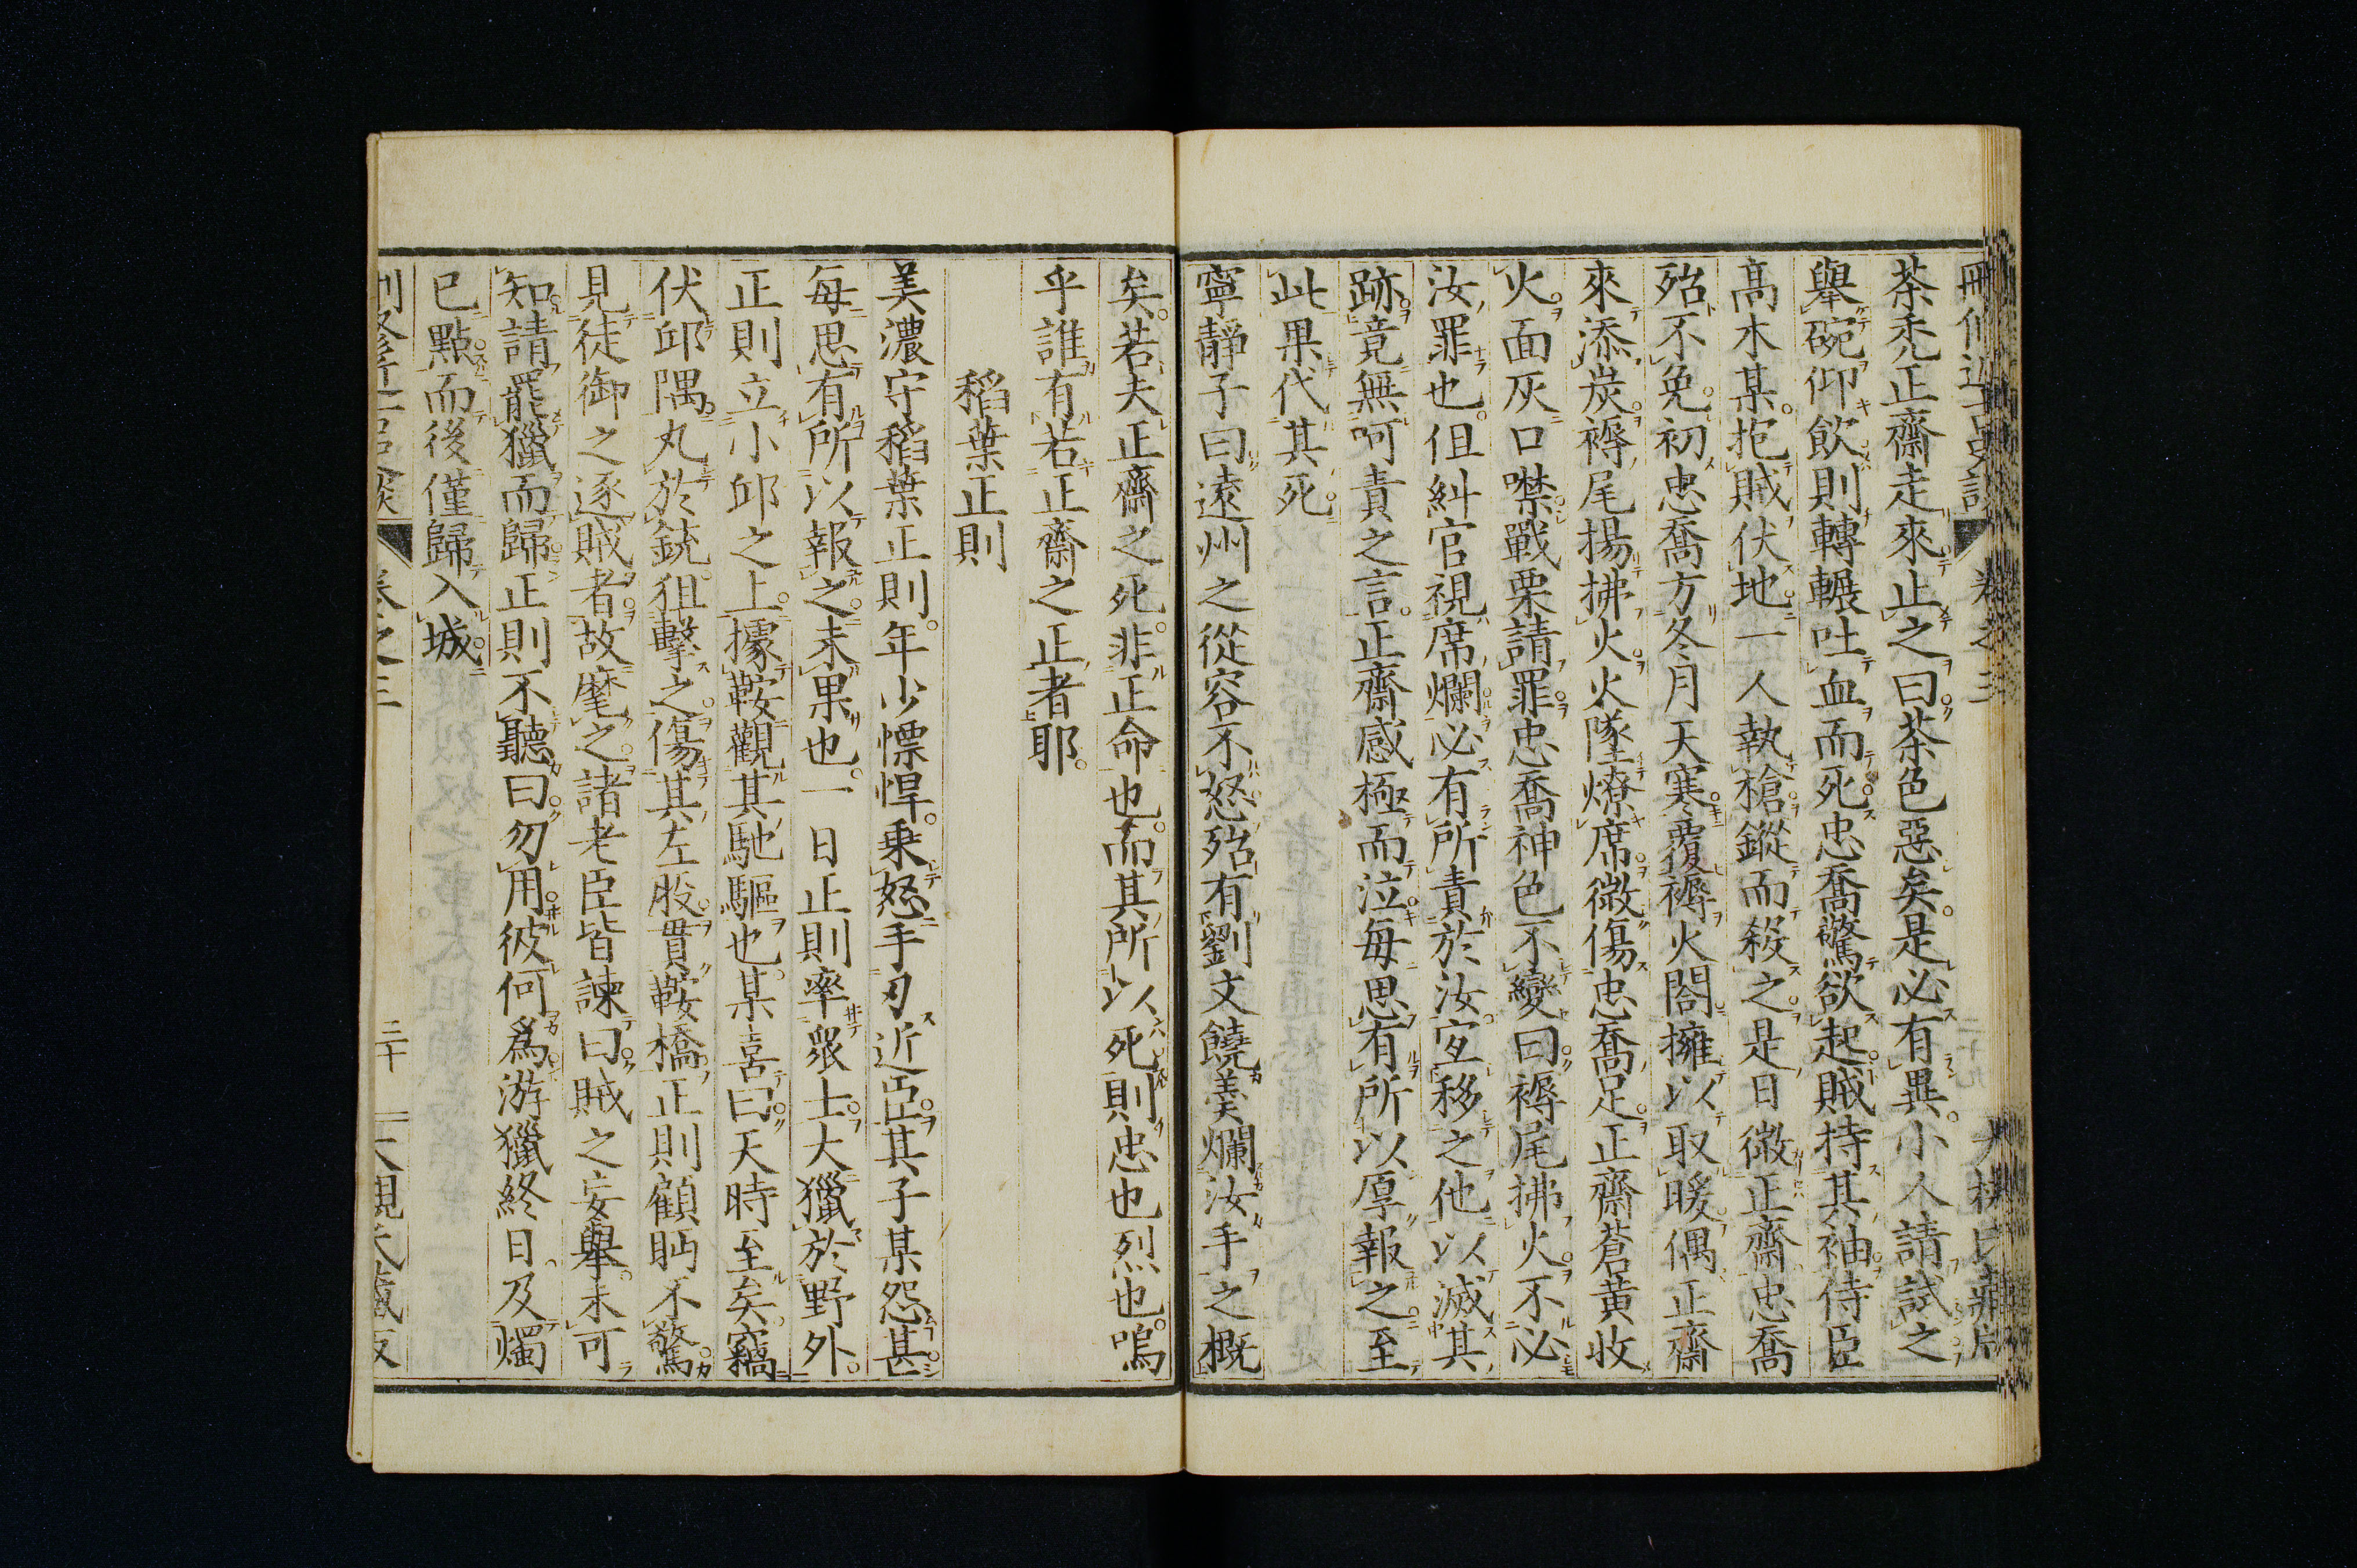 茶禿正齋走來止之曰茶色惡矣是必有異小人請試之
舉碗仰飲則轉輾吐血而死忠喬驚欲起賊持其袖侍臣
高木某抱賊伏地一人執槍鏦而殺之是日微正齋忠喬
殆不免初忠喬方冬月天寒覆褥火閤擁以取暖偶正齋
來添炭褥尾揚拂火火墜燎席微傷忠喬足正齋蒼黄收
火面灰口噤戰栗請罪忠喬神色不變曰褥尾拂火不必
汝罪也但糾官視席爛必有所責於汝宜移之他以滅其
跡竟無呵責之言正齋感極而泣每思有所以厚報之至
此果代其死
寧靜子曰遠州之從容不怒殆有劉文饒羹爛汝手之概
矣若夫正齋之死非正命也而其所以死則忠也烈也嗚
乎誰有若正齋之正者耶
稻葉正則
美濃守稻葉正則年少慓悍乗怒手刃近臣其子某怨甚
每思有所以報之未果也一日正則率衆士大獵於野外
正則立小邱之上據鞍觀其馳驅也某喜曰天時至矣竊
伏邱隅丸於銃狙擊之傷其左股貫鞍橋正則顧眄不驚
見徒御之逐賊者故麾之諸老臣皆諫曰賊之妄舉未可
知請罷獵而歸正則不聽曰勿用彼何爲游獵終日及燭
已點而後僅歸入城
卷之三
二十